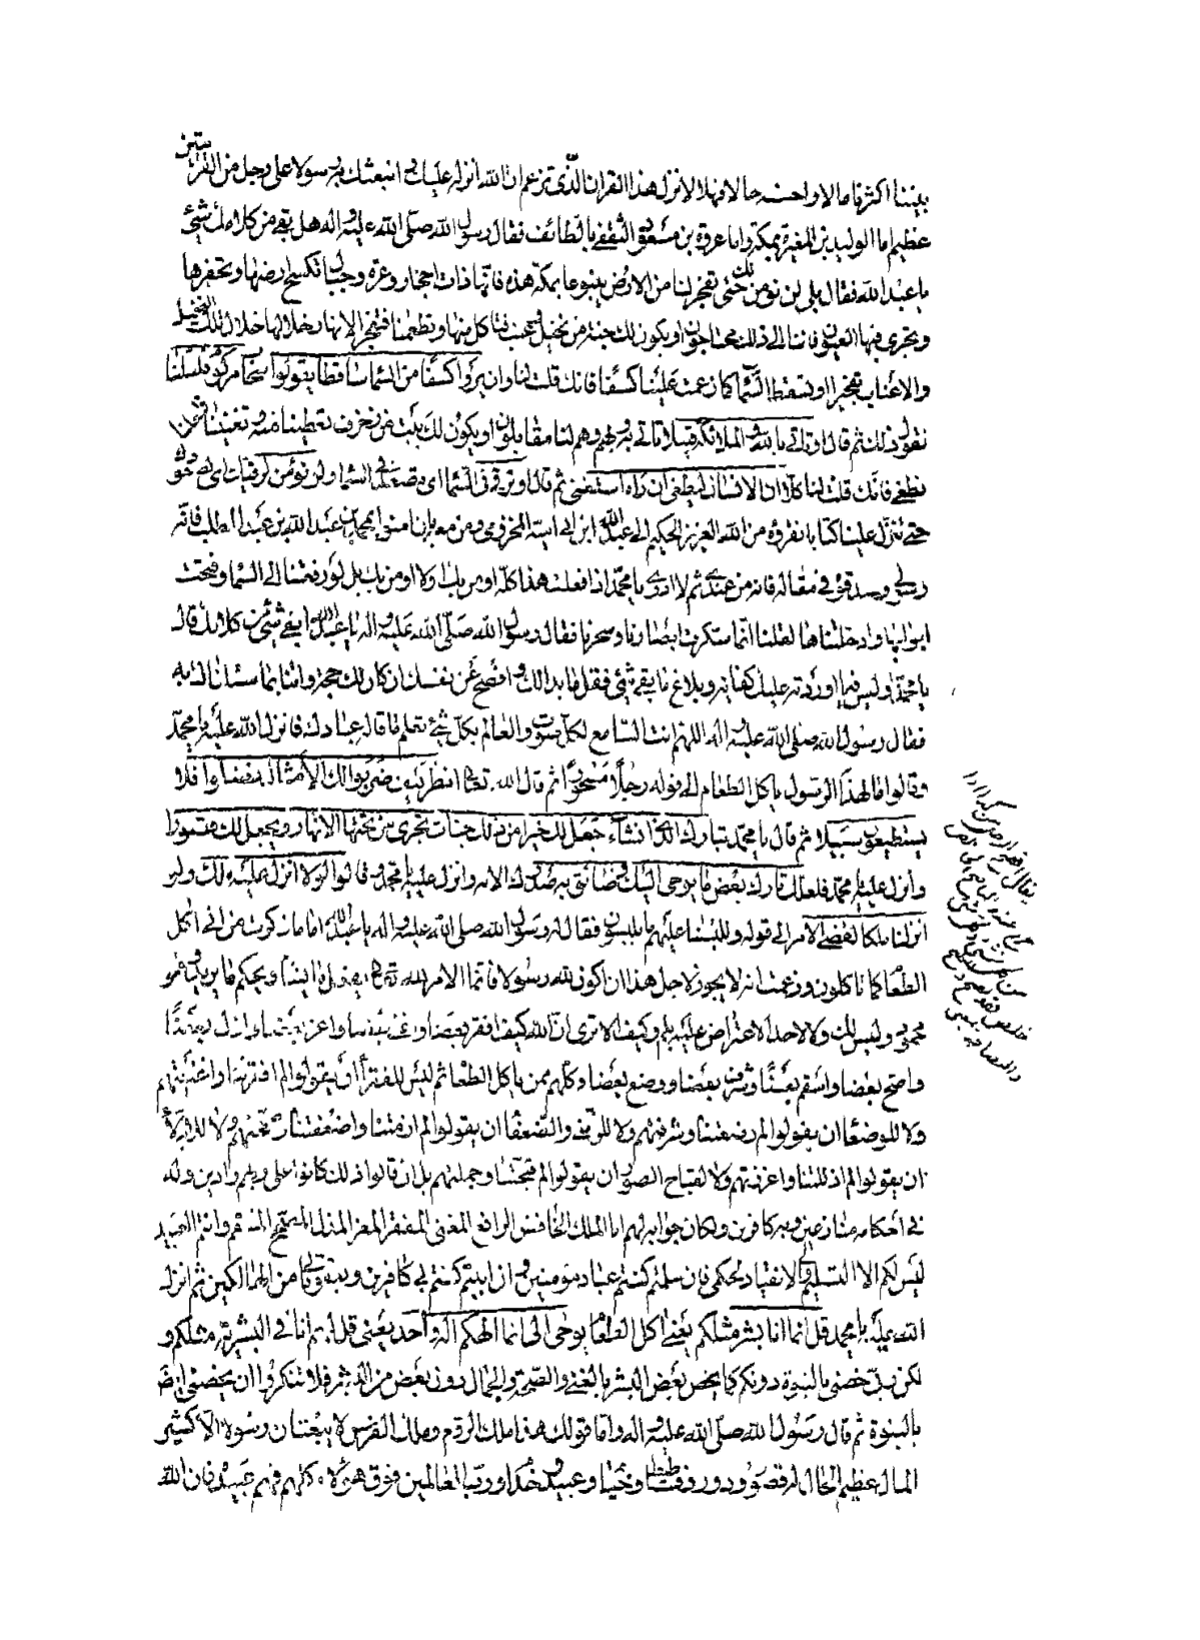 بيننا اكثرنا مالا واحسنه حالا فهلا لا نزل هذا القران الذى تزعم ان الله انزله عليك و انبعثك به رسولا على رجل من القريتين
عظيم اما الوليد بن المغيرة بمكة واما عروة بن مسعود الثقفى بالطائف فقال رسول الله صلى الله عليه واله هل بقى من كلامك شئ
يا عبد الله فقال بلى لن نومن لك حتى تفجر لنا من الارض ينبوعا بمكة هذه فانها ذات احجار وعرة وجبال تكسح ارضها وتحفرها
وتجرى فيها العيون فاننا الى ذلك محتاجون او يكون لك جنة من نخيل وعنب فتاكل منها وتطعمنا فتفجر الانهار خلالها خلال تلك النخيل
والاعناب تفجيرا او تسقط السماء كما زعمت علينا كسفا فانك قلت لنا وان يروا كسفا من السماء ساقطا يقولوا سحاب مركوم فلعلنا
نقول ذلك ثم قال او تاتى بالله والملائكة قبيلا تاتى به وبهم وهم لنا مقابلون او يكون لك بيت من زخرف تعطينا منه وتغنينا به فلعلنا
نطغى فانك قلت لنا كلا ان الانسان ليطغى ان راه استغنى ثم قال او ترقى فى السماء اى تصعد فى السماء ولن نؤمن لرقيك اى لصعودك
حتى تنزل علينا كتابا نقرؤه من الله العزيز الحكيم الى عبد الله ابن ابى امية المخزومى ومن معه بان امنوا بمحمد بن عبد الله بن عبد المطلب فانه
رسولى وصدقوه فى مقاله فانه من عندى ثم لا ادرى يا محمد اذا فعلت هذا كله اومن بك او لا اومن بك بل لو رفعتنا الى السماء وفتحت
ابوابها وادخلتناها لقلنا انما سكرت ابصارنا وسحرتنا فقال رسول الله صلى الله عليه واله يا عبد الله ابقى شئ من كلامك قال
يا محمد اوليس فيما اوردته عليك كفاية وبلاغ ما بقى شئ فقل ما بدا لك وافصح عن نفسك ان كان لك حجة واتنا بما سئلناك به
فقال رسول الله صلى الله عليه واله اللهم انت السامع لكل صوت والعالم بكل شئ تعلم ما قاله عبادك فانزل الله عليه يا محمد
وقالوا مال هذا الرسول ياكل الطعام الى قوله رجلا مسحورا ثم قال الله تعالى انظر كيف ضربوا لك الامثال فضلوا فلا
يستطيعون سبيلا ثم قال يا محمد تبارك الذى ان شاء جعل لك خيرا من ذلك جنات تجرى من تحتها الانهار ويجعل لك قصورا
وانزل عليه يا محمد فلعلك تارك بعض ما يوحى اليك وضائق به صدرك الاية وانزل عليه يا محمد وقالوا لولا انزل عليه ملك ولو
انزلنا ملكا لقضى الامر الى قوله وللبسنا عليهم ما يلبسون فقال له رسول الله صلى الله عليه واله يا عبد الله اما ما ذكرت من انى اكل
الطعام كما تاكلون وزعمت انه لا يجوز لاجل هذا ان اكون لله رسولا فانما الامر لله تعالى يفعل ما يشاء ويحكم ما يريد وهو
محمود وليس لك ولا لاحد الاعتراض عليه بلم وكيف الا ترى ان الله كيف افقر بعضا واغنى بعضا واعز بعضا واذل بعضا
واصح بعضا واسقم بعضا وشرف بعضا ووضع بعضا وكلهم ممن ياكل الطعام ثم ليس للفقراء ان يقولوا لم افقرتنا واغنيتهم
ولا للوضعاء ان يقولوا لم وضعتنا وشرفتهم ولا للزمنى والضعفاء ان يقولوا لم ازمنتنا واضعفتنا وصححتهم ولا للاذلاء
ان يقولوا لم اذللتنا واعززتهم ولا لقباح الصور ان يقولوا لم قبحتنا وجملتهم بل ان قالوا ذلك كانوا على ربهم رادين وله
فى احكامه منازعين وبه كافرين ولكان جوابه لهم انا الملك الخافض الرافع المغنى المفقر المعز المذل المصحح المسقم وانتم العبيد
ليس لكم الا التسليم لى والانقياد لحكمى فان سلمتم كنتم عبادا مومنين وان ابيتم كنتم بى كافرين وبعقوباتى من الهالكين ثم انزل
الله عليه يا محمد قل انما انا بشر مثلكم يعنى اكل الطعام يوحى الى انما الهكم اله واحد يعنى قل لهم انا فى البشرية مثلكم و
لكن ربى خصنى بالنبوة دونكم كما يخص بعض البشر بالغنى والصحة والجمال دون بعض من البشر فلا تنكروا ان يخصنى ايضا
بالنبوة ثم قال رسول الله صلى الله عليه واله واما قولك هذا ملك الروم وملك الفرس لا يبعثان رسولا الا كثير
المال عظيم الحال له قصور ودور وفساطيط وخيام وعبيد وخدام ورب العالمين فوق هؤلاء كلهم فهم عبيده فان الله